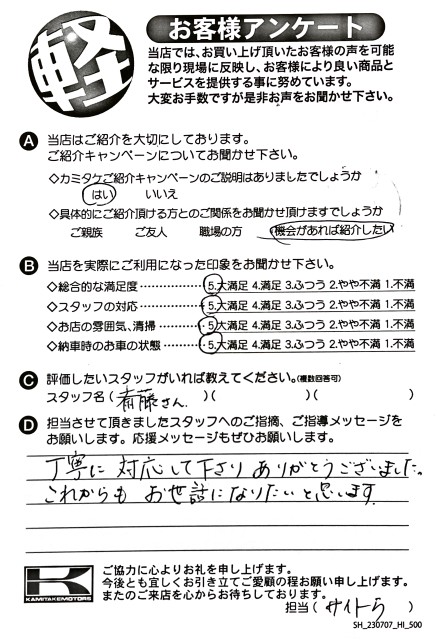 軽
お客様アンケート
当店では、お買い上げ頂いたお客様の声を可能
な限り現場に反映し、お客様により良い商品と
サービスを提供する事に努めています。
大変お手数ですが是非お声をお聞かせ下さい。
A 当店はご紹介を大切にしております。
ご紹介キャンペーンについてお聞かせ下さい。
◇カミタケご紹介キャンペーンのご説明はありましたでしょうか
はい いいえ
◇具体的にご紹介頂ける方とのご関係をお聞かせ頂けますでしょうか
ご親族 ご友人 職場の方 機会があれば紹介したい
B 当店を実際にご利用になった印象をお聞かせ下さい。
◇総合的な満足度・・・・・・・・・・・5.大満足 4.満足 3.ふつう 2.やや不満 1.不満
◇スタッフの対応・・・・・・・・・・・5.大満足 4.満足 3.ふつう 2.やや不満 1.不満
◇お店の雰囲気、清掃・・・・・・・5.大満足 4.満足 3.ふつう 2.やや不満 1.不満
◇納車時のお車の状態・・・・・・・5.大満足 4.満足 3.ふつう 2.やや不満 1.不満
C 評価したいスタッフがいれば教えてください。(複数回答可)
スタッフ名(斎藤さん)( )( )
D 担当させて頂きましたスタッフへのご指摘、ご指導メッセージを
お願いします。応援メッセージもぜひお願いします。
丁寧に対応して下さりありがとうございました。
これからもお世話になりたいと思います
KAMITAKEMOTORS
ご協力に心よりお礼を申し上げます。
今後とも宜しくお引き立てご愛顧の程お願い申し上げます。
またのご来店を心からお待ちしております。
担当(サイトウ)
SH_230707_HI_500